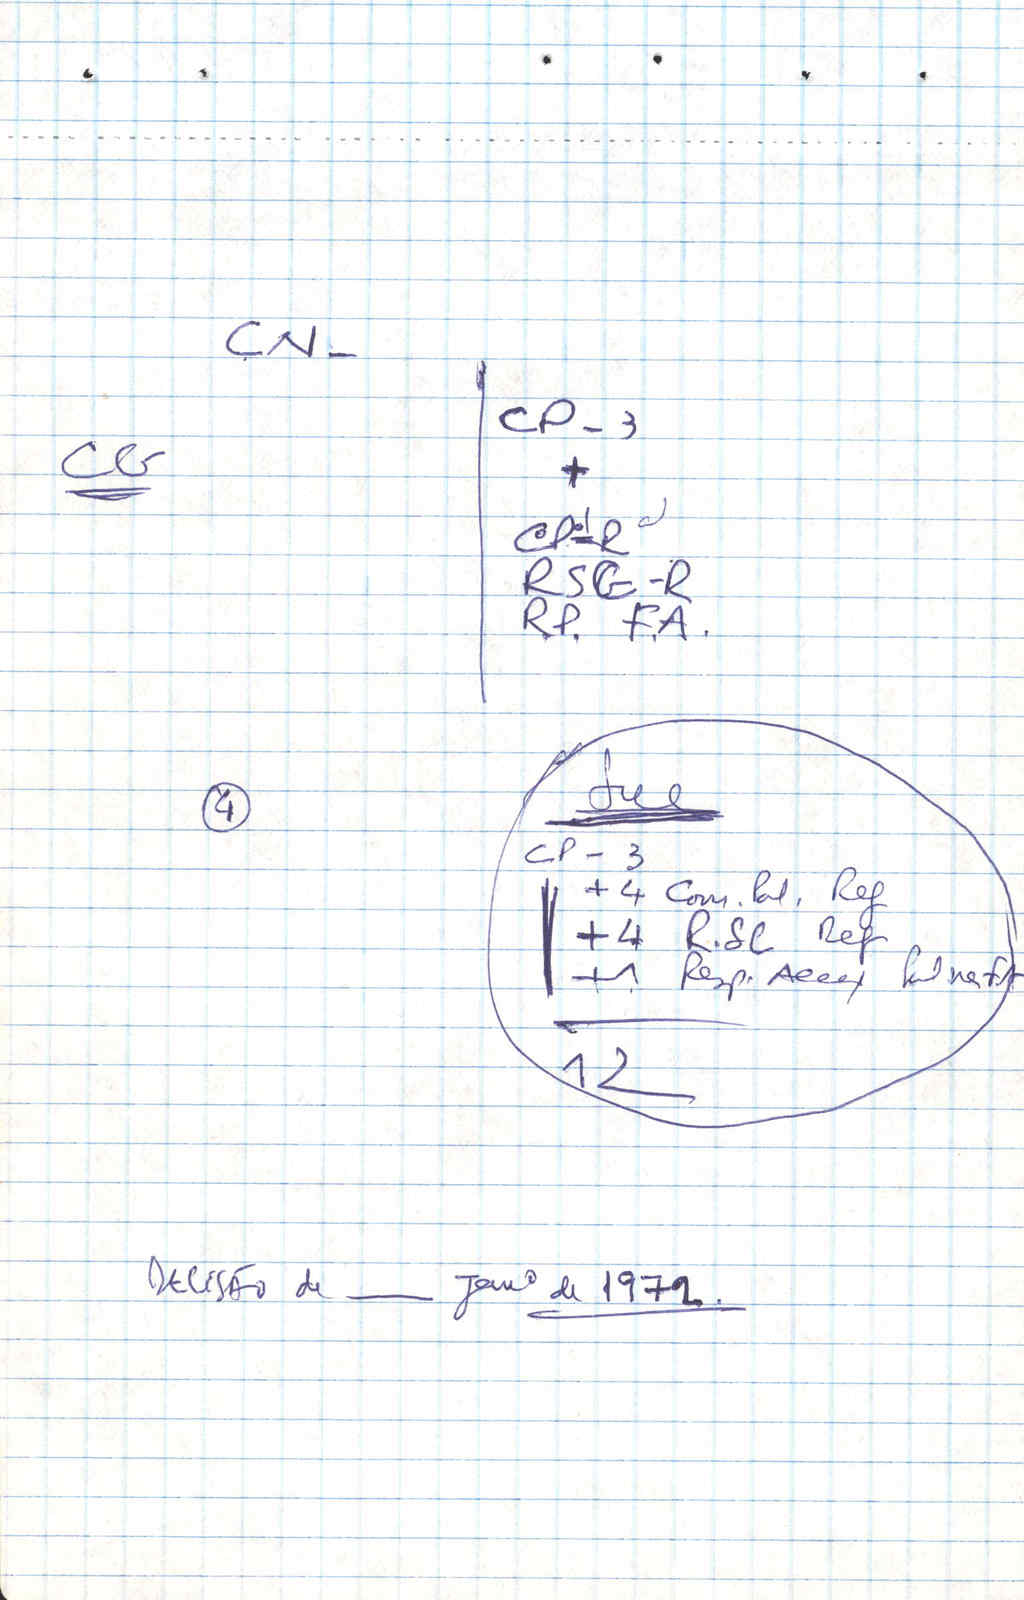 CN_
CG
CP - 3
+
CP-R
RSG - R
R.P. F.A.
4
CP - 3
+4 Com. Pol. Reg
+4 R.SG Reg
+1 Resp.
12
DECISÃO de ____ Janº de 1972.